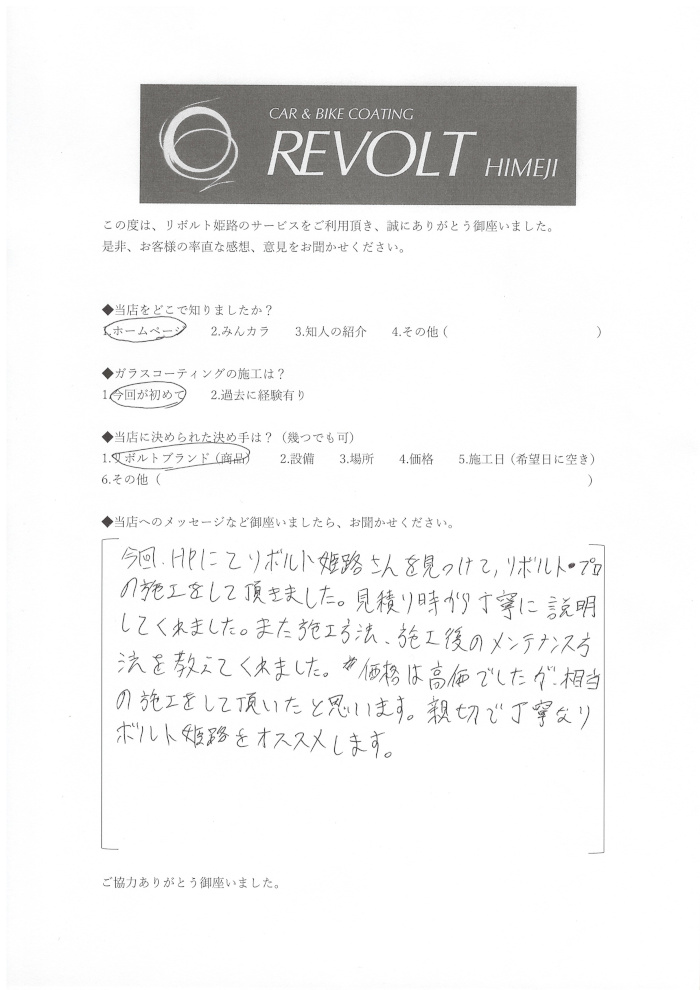 CAR & BIKE COATING
REVOLT HIMEJI
この度は、リボルト姫路のサービスをご利用頂き、誠にありがとう御座いました。
是非、お客様の率直な感想、意見をお聞かせください。
◆当店をどこで知りましたか？
1.ホームページ 2.みんカラ 3.知人の紹介 4.その他（ ）
◆ガラスコーティングの施工は？
1.今回が初めて 2.過去に経験有り
◆当店に決められた決め手は？（幾つでも可）
1.リボルトブランド（商品） 2.設備 3.場所 4.価格 5.施工日（希望日に空き）
6.その他（ ）
◆当店へのメッセージなど御座いましたら、お聞かせください。
今回、HPにてリボルト姫路さんを見つけて、リボルト・プロ
の施工をして頂きました。見積り時から丁寧に説明
してくれました。また施工方法、施工後のメンテナンス方
法を教えてくれました。価格は高価でしたが、相当
の施工をして頂いたと思います。親切で丁寧なリ
ボルト姫路をオススメします。
ご協力ありがとう御座いました。